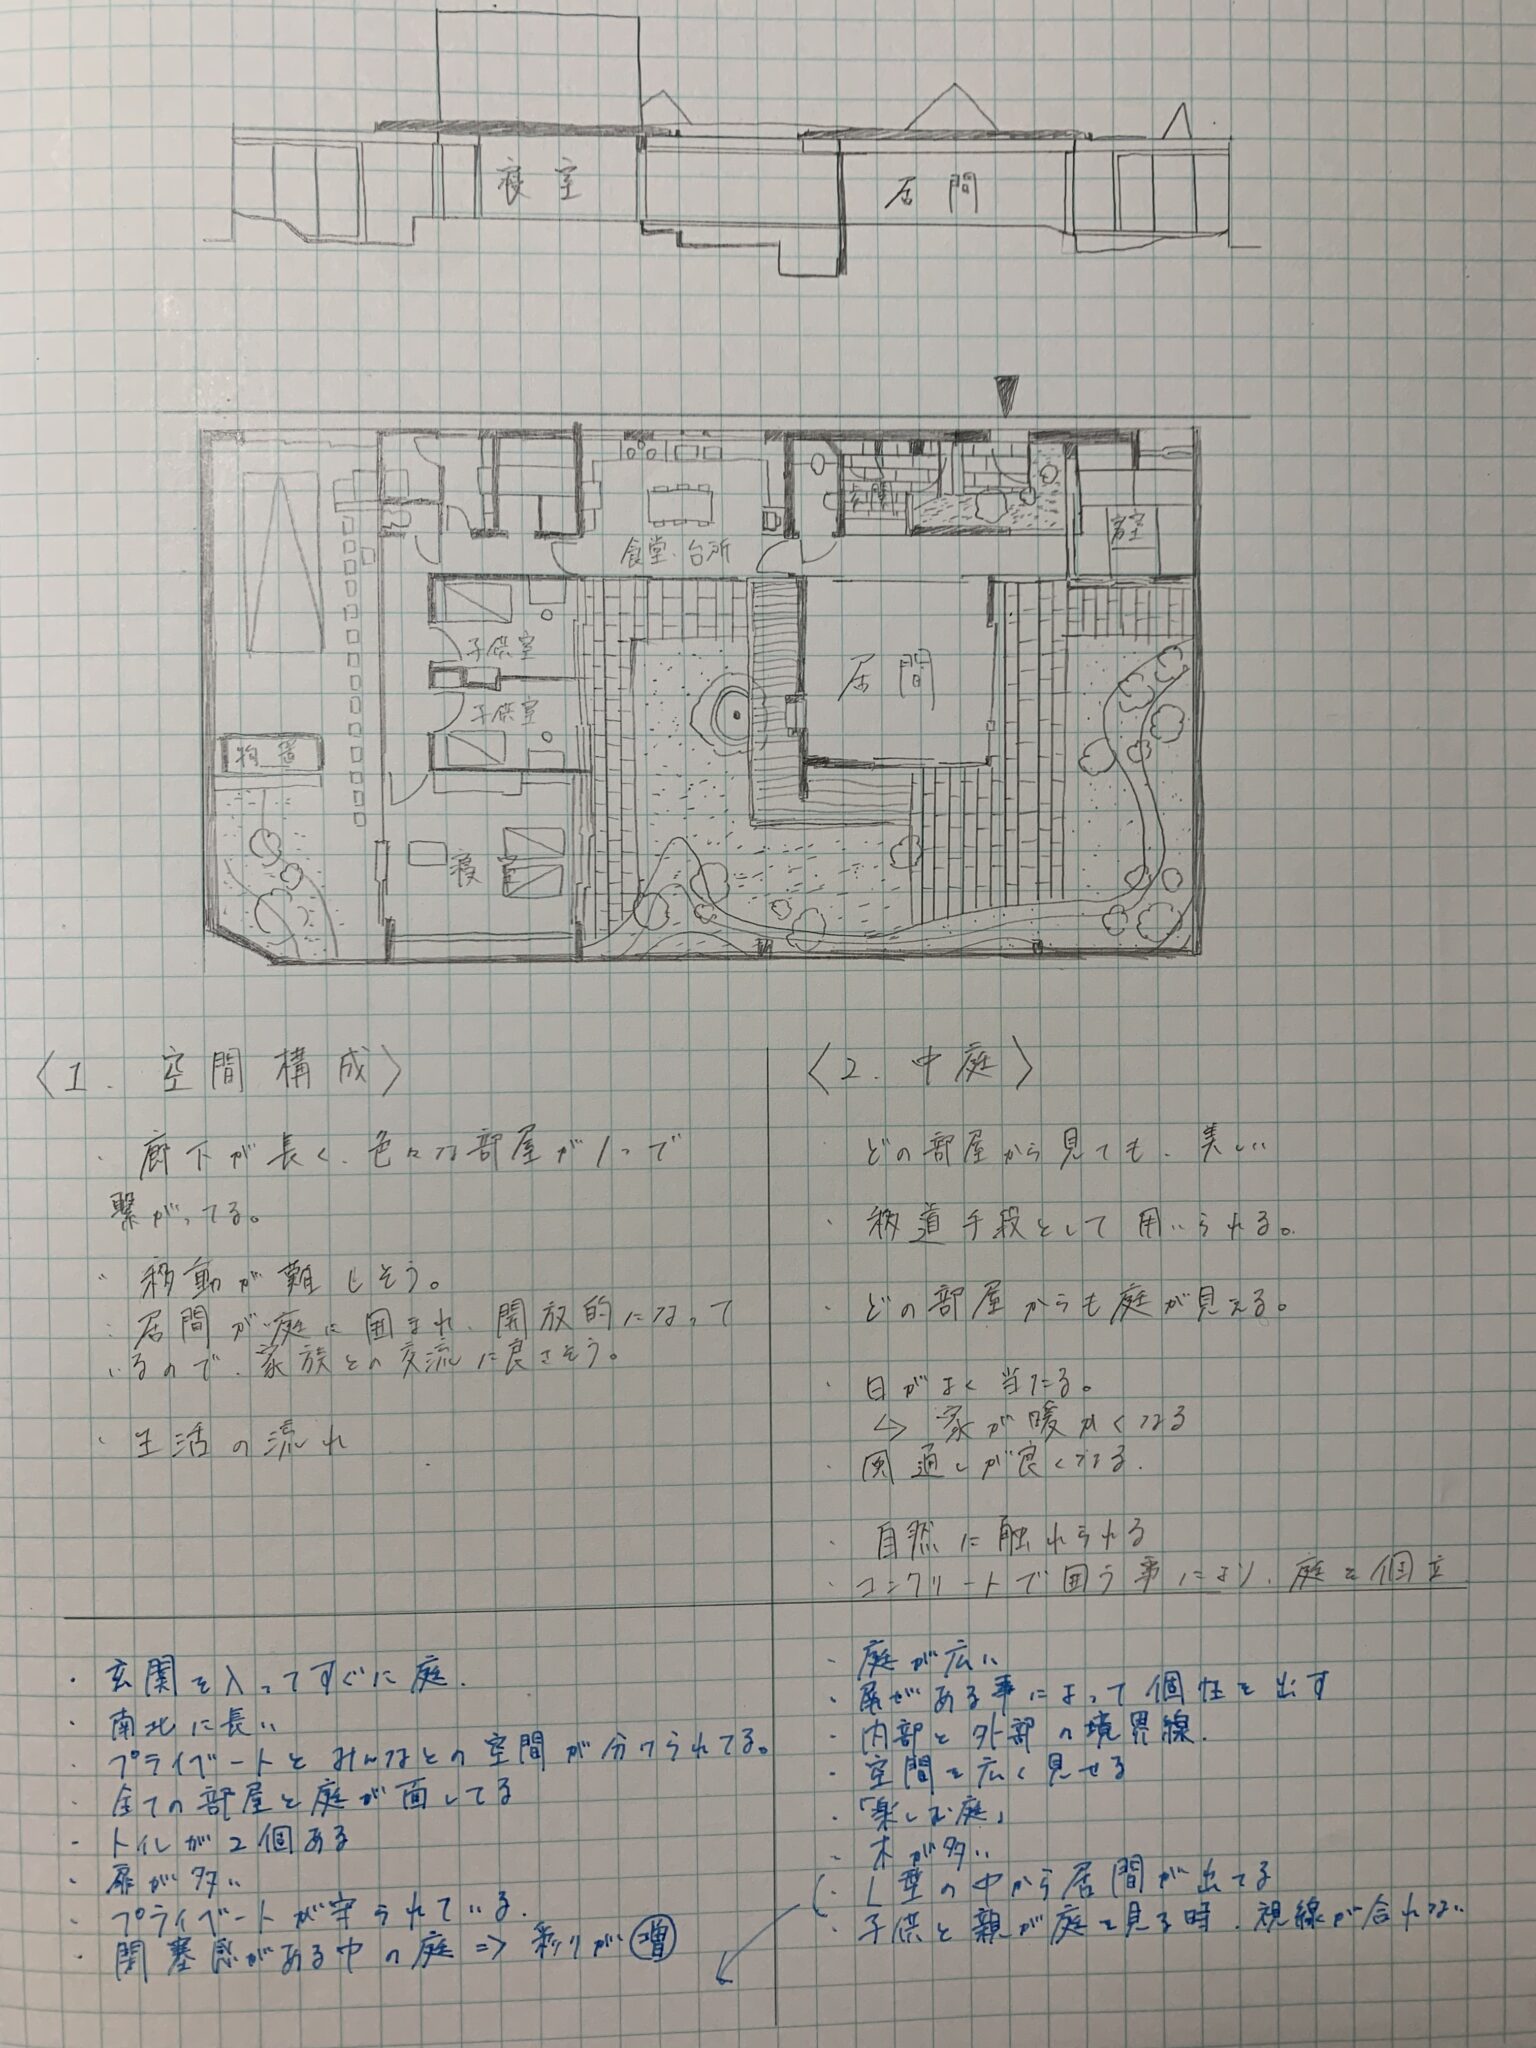 寝室
居間
玄関
客室
食堂・台所
子供室
居間
子供室
物置
寝室
〈1. 空間構成〉
・廊下が長く、色々な部屋が1つで
繋がってる。
・移動が難しそう。
・居間が庭に囲まれ、開放的になって
いるので、家族との交流に良さそう。
・生活の流れ
〈2. 中庭〉
・どの部屋から見ても、美しい
・移道手段として用いられる。
・どの部屋からも庭が見える。
・日がよく当たる。
↳ 家が暖かくなる
・風通しが良くなる.
・自然に触れられる
・コンクリートで囲う事により、庭を個立
・玄関を入ってすぐに庭.
・南北に長い
・プライベートとみんなとの空間が分けられてる。
・全ての部屋と庭が面してる
・トイレが2個ある
・扉が多い
・プライベートが守られている.
・閉塞感がある中の庭 ⇒ 彩りが増
・庭が広い
・庭がある事によって個性を出す
・内部と外部の境界線.
・空間を広く見せる
・「楽しむ庭」
・木が多い
・L型の中から居間が出てる
・子供と親が庭を見る時、視線が合わない